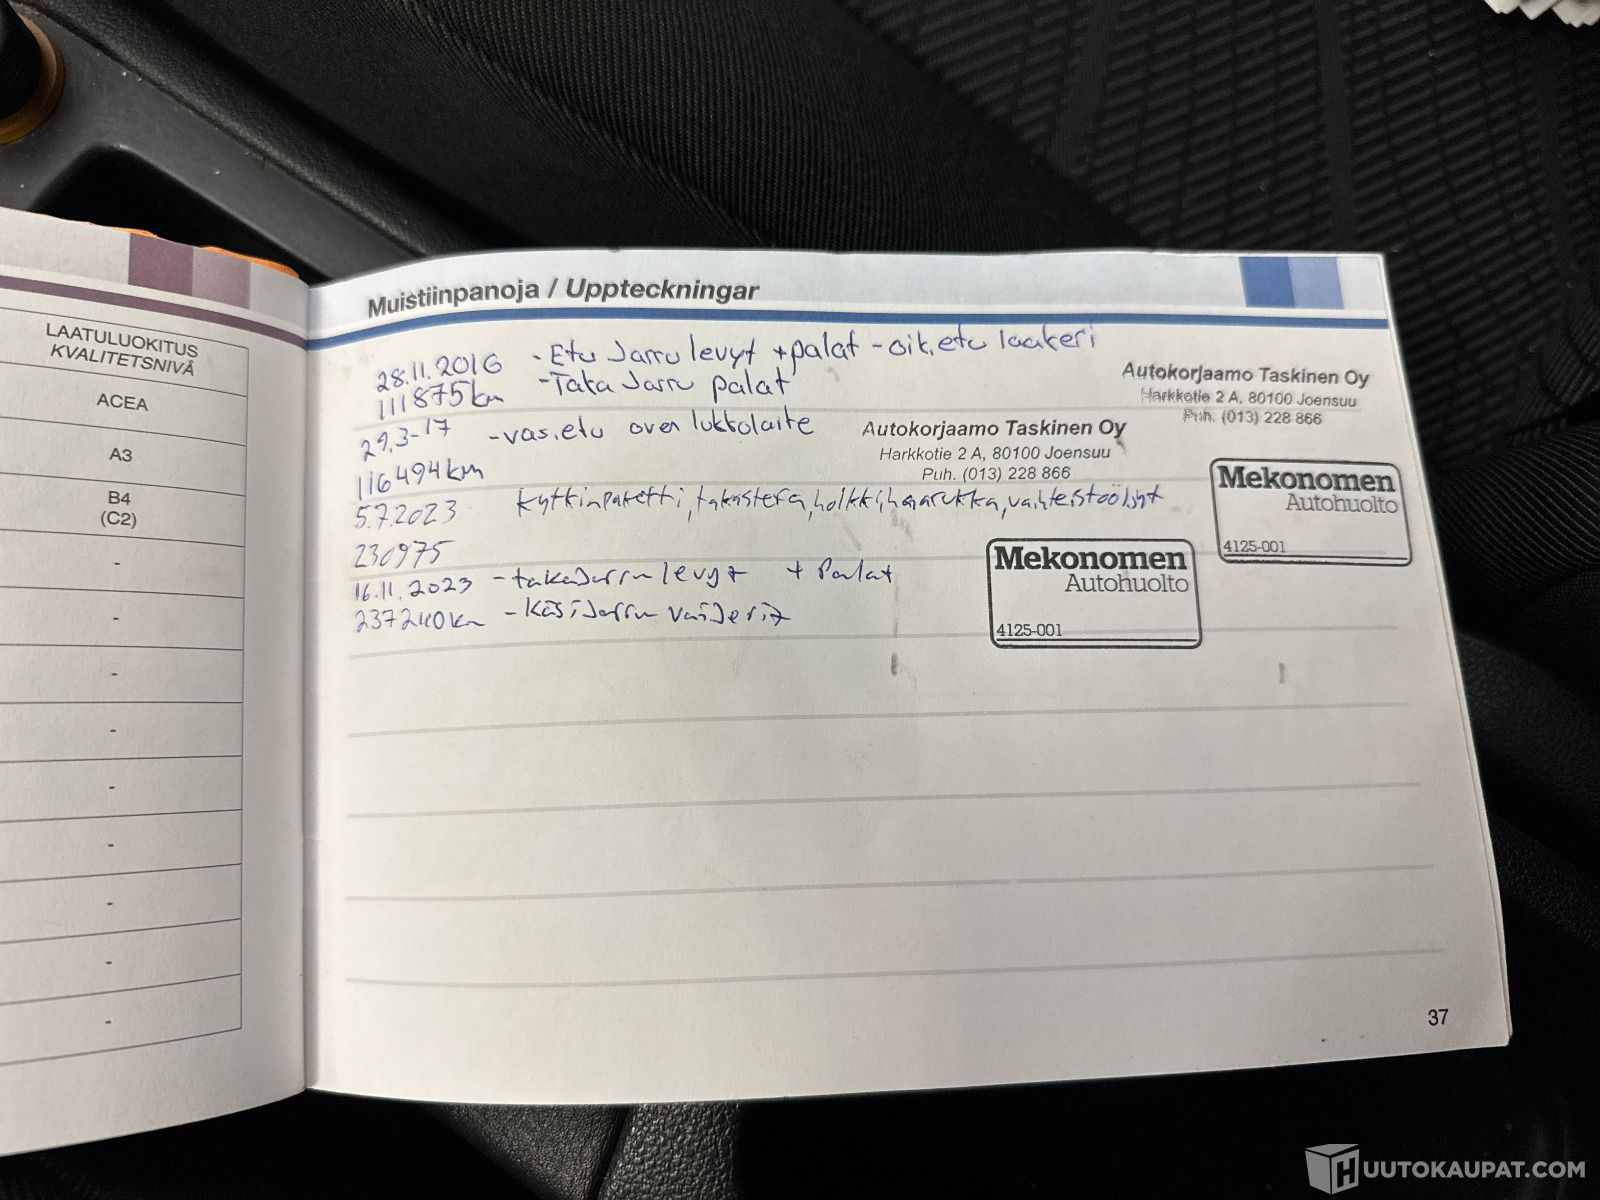 LAATULUOKITUS
KVALITETSNIVÅ
ACEA
A3
B4
(C2)
-
-
-
-
-
-
-
-
-
Muistiinpanoja / Uppteckningar
28.11.2016 - Etu Jarru levyt + palat - oik.etu laakeri
111875km - Taka Jarru palat
Autokorjaamo Taskinen Oy
Harkkotie 2 A, 80100 Joensuu
Puh. (013) 228 866
29.3-17 - vas.etu oven lukkolaite
116494km
Autokorjaamo Taskinen Oy
Harkkotie 2 A, 80100 Joensuu
Puh. (013) 228 866
5.7.2023 kytkinpaketti, takastefa, holkki, haarukka, vaihteistoöljyt
230975
Mekonomen
Autohuolto
4125-001
16.11.2023 - takaJarru levyt + Palat
237240km - KäsiJarru vaiJerit
Mekonomen
Autohuolto
4125-001
37
HUUTOKAUPAT.COM